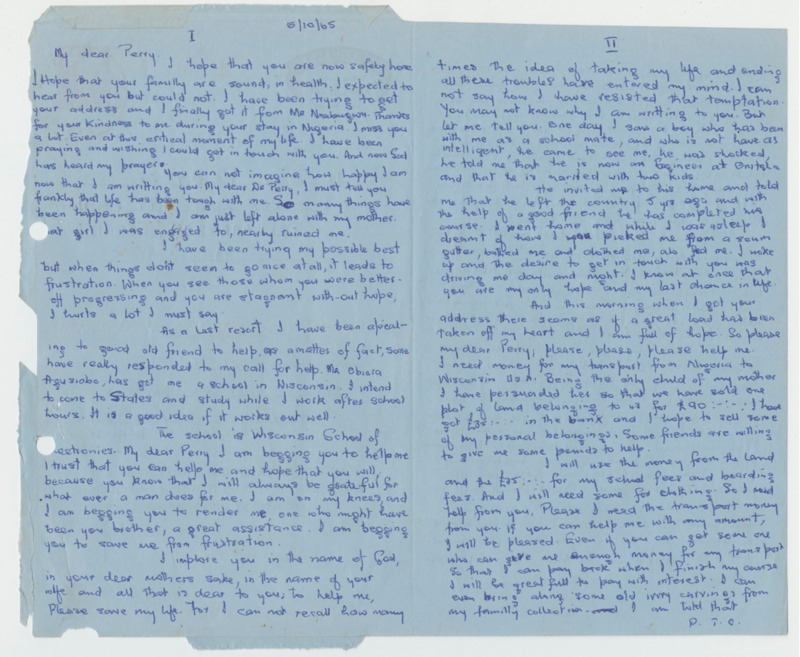 5/10/65
I
My dear Perry. I hope that you are now safely home
I Hope that your familly are sound, in health. I expected to
hear from you but could not. I have been trying to get
your address and I finally got it from Mr Thanks
for your Kindness to me during your stay in Nigeria. I miss you
a lot. Even at this critical moment of my life. I have been
praying and wishing I could get in touch with you. And now God
has heard my prayers.
you can not imagine how happy I am
now that I am writting you. My dear De Perry, I must tell you
frankly that life has been tough with me. So many things have
been happening and I am just left alone with my mother.
at girl I was engaged to, nearly ruined me.
I have been trying my possible best
but when things don't seem to go nice at all, it leads to
frustration. When you see those whom you were better-
off progressing and you are stagnant with-out hope,
I hurts a lot I must say.
As a last resort I have been apeal-
ing to good old friend to help, as a matter of fact, some
have really responded to my call for help. Mr Obiora
has got me a school in Wisconsin. I intend
to come to States and study while I work after school
hours. It is a good idea if it works out well.
The school is Wisconsin School of
ectronics. My dear Perry I am begging you to help me
I trust that you can help me and hope that you will,
because you know that I will always be grateful for
what ever a man does for me. I am on my knees, and
I am begging you to render me, one who might have
been your brother, a great assistance. I am begging
you to save me from frustration.
I implore you in the name of God,
in your dear mothers sake, in the name of your
wife and all that is dear to you, to help me,
Please save my life. For I can not recall how many
II
times the idea of taking my life and ending
all these troubles have entered my mind. I can
not say how I have resisted that temptation.
You may not know why I am writting to you. But
let me tell you. One day I saw a boy who has been
with me as a school mate, and who is not have as
intelligent he came to see me, he was shocked,
he told me that he is now an Engineer at Onitsha
and that he is married with two kids.
He invited me to his home and told
me that he left the country 5 yrs ago and with
the help of a good friend he has completed his
course. I went home and while I was asleep I
dreamt of how I you picked me from a scum
gutter, bathed me and clothed me, also fed me. I woke
up and the desire to get in touch with you was
driving me day and night. I know at once that
you are my only hope and my last chance in life.
And this morning when I got your
address there seams as if a great load has been
taken off my heart and I am full of hope. So please
my dear Perry, please, please, please help me.
I need money for my transport from Nigeria to
Wisconsin U.S.A. Being the only child of my mother
I have persuaded her so that we have sold one
plot of land belonging to us for £90 :-:-. I have
got £35:-:- in the bank and I hope to sell some
of my personal belongings. Some friends are willing
to give me some pounds to help.
I will use the money from the land
and the £35:-:- for my school fees and boarding
fees. And I will need some for clothing. So I need
help from you. Please I need the transport money
from you. If you can help me with any amount,
I will be pleased Even if you can get some one
who can give me enough money for my transport
so that I can pay back when I finish my course
I will be great full to pay with interest. I can
even bring along some old ivory carvings from
my familly collection. I am told that
P. T. O.